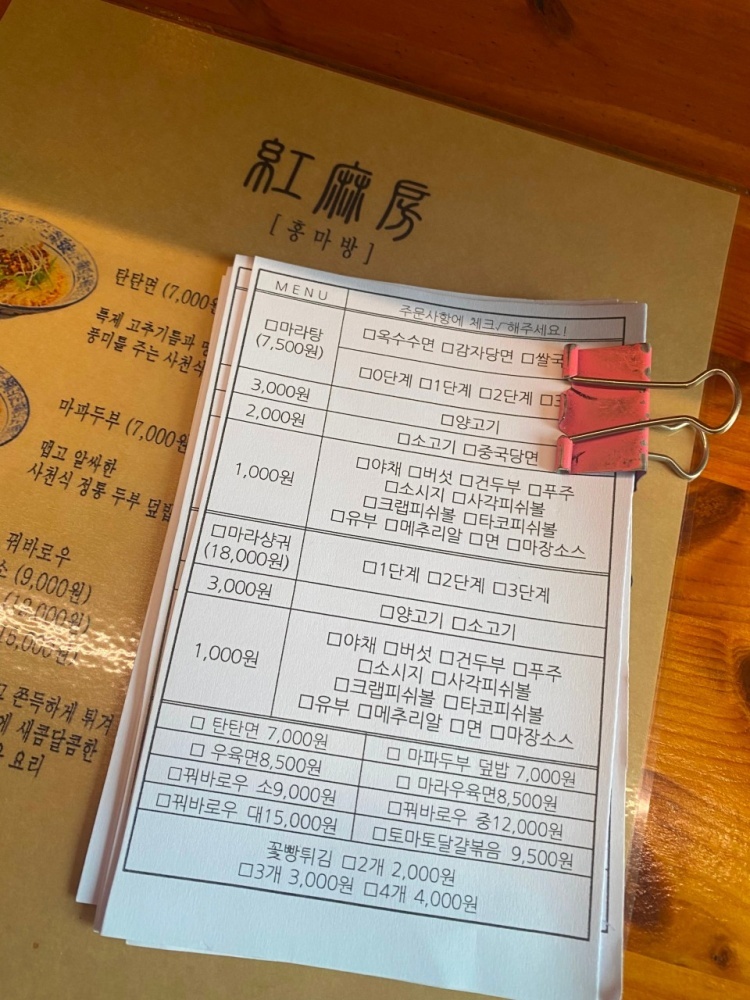 紅麻房
[홍마방]
탄탄면 (7,000원
특제 고추기름과 땅
풍미를 주는 사천식
마파두부 (7,000원
맵고 알싸한
사천식 정통 두부 덮밥
꿔바로우
소 (9,000원)
(12,000원)
15,000원)
고 쫀득하게 튀겨
에 새콤달콤한
요리
MENU
주문사항에 체크√해주세요!
□마라탕
(7,500원)
□옥수수면 □감자당면 □쌀국
□0단계 □1단계 □2단계 □3
3,000원
□양고기
2,000원
□소고기 □중국당면
1,000원
□야채 □버섯 □건두부 □푸주
□소시지 □사각피쉬볼
□크랩피쉬볼 □타코피쉬볼
□유부 □메추리알 □면 □마장소스
□마라샹궈
(18,000원)
□1단계 □2단계 □3단계
3,000원
□양고기 □소고기
1,000원
□야채 □버섯 □건두부 □푸주
□소시지 □사각피쉬볼
□크랩피쉬볼 □타코피쉬볼
□유부 □메추리알 □면 □마장소스
□ 탄탄면 7,000원
□ 마파두부 덮밥 7,000원
□ 우육면8,500원
□ 마라우육면8,500원
□꿔바로우 소9,000원
□꿔바로우 중12,000원
□꿔바로우 대15,000원
□토마토달걀볶음 9,500원
꽃빵튀김 □2개 2,000원
□3개 3,000원 □4개 4,000원